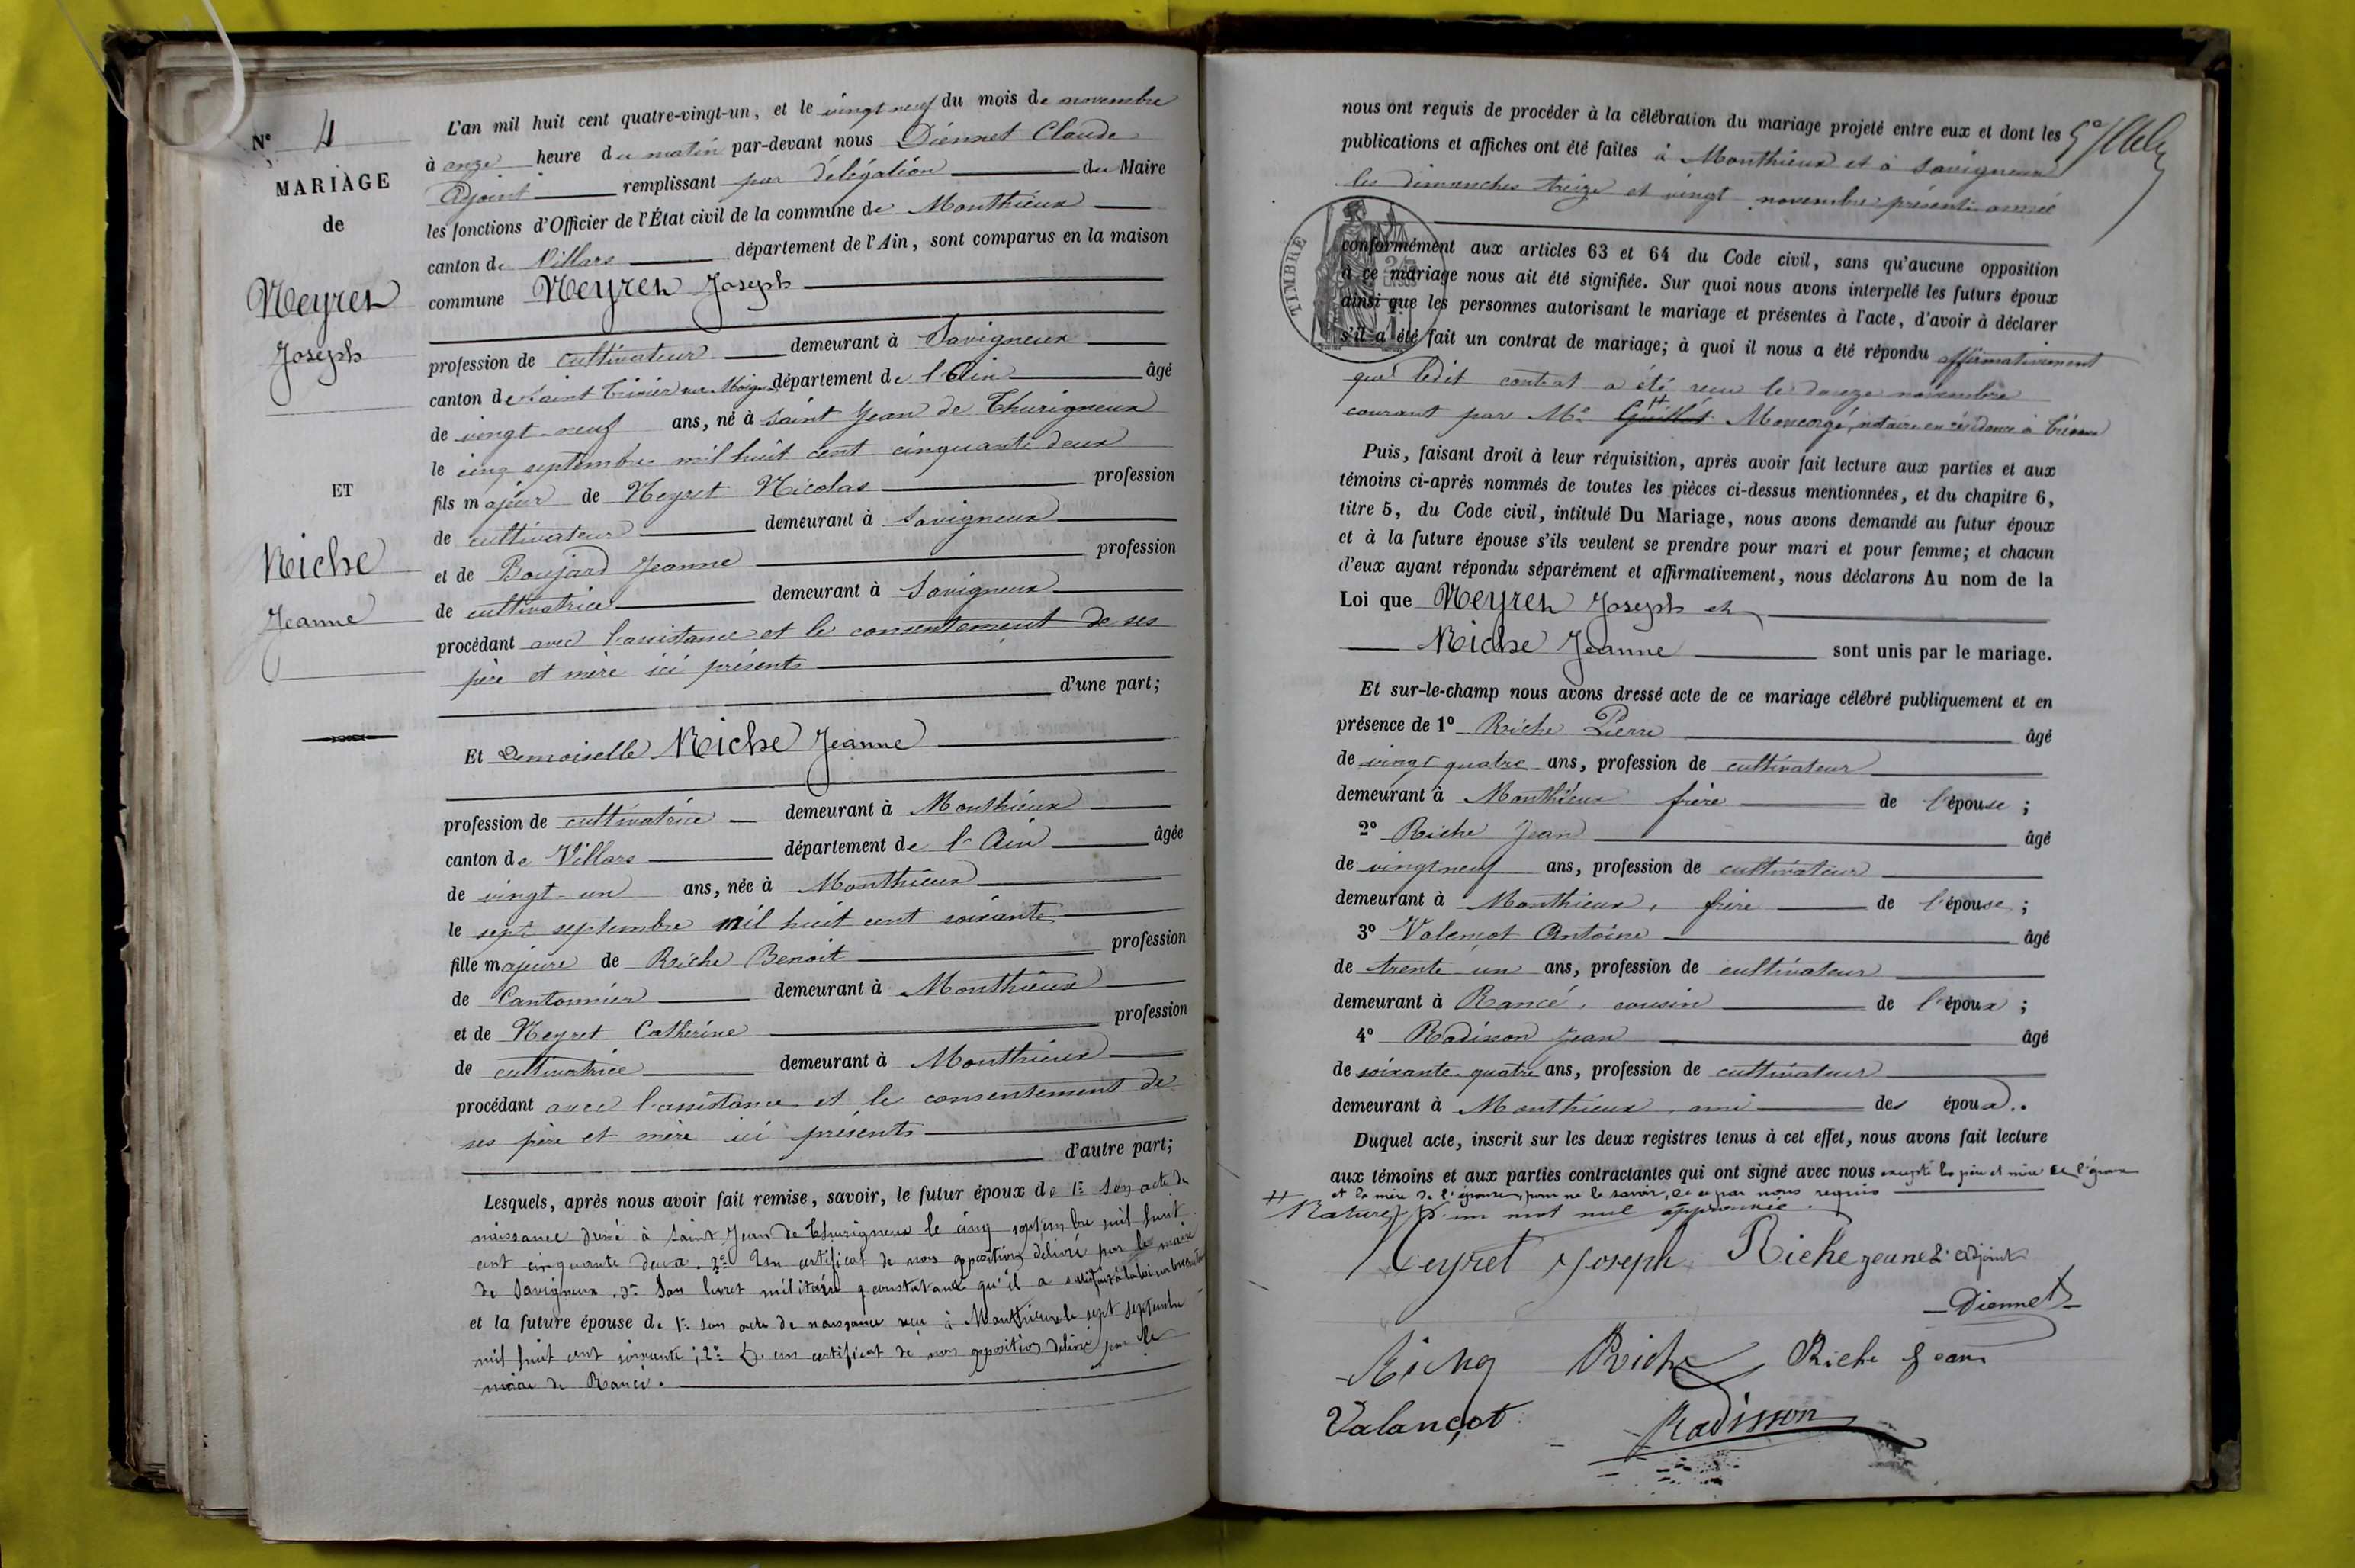 N° 4
MARIAGE
de
Neyret
Joseph
ET
Riche
Jeanne
L'an mil huit cent quatre-vingt-un, et le vingt neuf du mois de novembre
à onze heure du matin par-devant nous Diennet Claude
Adjoint remplissant par délégation du Maire
les fonctions d'Officier de l'État civil de la commune de Monthieux
canton de Villars département de l'Ain, sont comparus en la maison
commune Neyret Joseph
profession de cultivateur demeurant à Savigneux
canton de Saint Trivier sur Moignans département de l'Ain âgé
de vingt-neuf ans, né à Saint Jean de Thurigneux
le cinq septembre mil huit cent cinquante deux
fils majeur de Neyret Nicolas profession
de cultivateur demeurant à Savigneux
et de Boujard Jeanne profession
de cultivatrice demeurant à Savigneux
procédant avec l'assistance et le consentement de ses
père et mère ici présents
d'une part;
Et Demoiselle Riche Jeanne
profession de cultivatrice demeurant à Monthieux
canton de Villars département de l'Ain âgée
de vingt-un ans, née à Monthieux
le sept septembre mil huit cent soixante
fille majeure de Riche Benoit profession
de Cantonnier demeurant à Monthieux
et de Neyret Catherine profession
de cultivatrice demeurant à Monthieux
procédant avec l'assistance et le consentement de
ses père et mère ici présents
d'autre part;
Lesquels, après nous avoir fait remise, savoir, le futur époux de 1° Son acte de
naissance dressé à Saint Jean de Thurigneux le cinq septembre mil huit
cent cinquante deux. 2° Un certificat de non opposition délivré par le maire
de Savigneux. 3° Son livret militaire constatant qu'il a satisfait à la loi sur le recrutement
et la future épouse de 1° son acte de naissance reçu à Monthieux le sept septembre
mil huit cent soixante; 2° D'un certificat de non opposition délivré par le
maire de Rancé.
nous ont requis de procéder à la célébration du mariage projeté entre eux et dont les
publications et affiches ont été faites à Monthieux et à Savigneux
les dimanches treize et vingt novembre présente année
TIMBRE
conformément aux articles 63 et 64 du Code civil, sans qu'aucune opposition
à ce mariage nous ait été signifiée. Sur quoi nous avons interpellé les futurs époux
ainsi que les personnes autorisant le mariage et présentes à l'acte, d'avoir à déclarer
s'il a été fait un contrat de mariage; à quoi il nous a été répondu affirmativement
que ledit contrat a été reçu le douze novembre
courant par Me Guillot Moncorgé, notaire en résidence à Trévoux
Puis, faisant droit à leur réquisition, après avoir fait lecture aux parties et aux
témoins ci-après nommés de toutes les pièces ci-dessus mentionnées, et du chapitre 6,
titre 5, du Code civil, intitulé Du Mariage, nous avons demandé au futur époux
et à la future épouse s'ils veulent se prendre pour mari et pour femme; et chacun
d'eux ayant répondu séparément et affirmativement, nous déclarons Au nom de la
Loi que Neyret Joseph et
Riche Jeanne sont unis par le mariage.
Et sur-le-champ nous avons dressé acte de ce mariage célébré publiquement et en
présence de 1° Riche Pierre âgé
de vingt quatre ans, profession de cultivateur
demeurant à Monthieux frère de l'épouse;
2° Riche Jean âgé
de vingt neuf ans, profession de cultivateur
demeurant à Monthieux, frère de l'épouse;
3° Valençot Antoine âgé
de trente un ans, profession de cultivateur
demeurant à Rancé, cousin de l'époux;
4° Radisson Jean âgé
de soixante-quatre ans, profession de cultivateur
demeurant à Monthieux, ami des époux.
Duquel acte, inscrit sur les deux registres tenus à cet effet, nous avons fait lecture
aux témoins et aux parties contractantes qui ont signé avec nous excepté les père et mère de l'époux
et la mère de l'épouse, pour ne le savoir, de ce par nous requis
Rature d'un mot nul approuvée.
Neyret Joseph Riche Jeane L'adjoint
Diennet
Riche Riche Riche Jean
Valançot Radisson